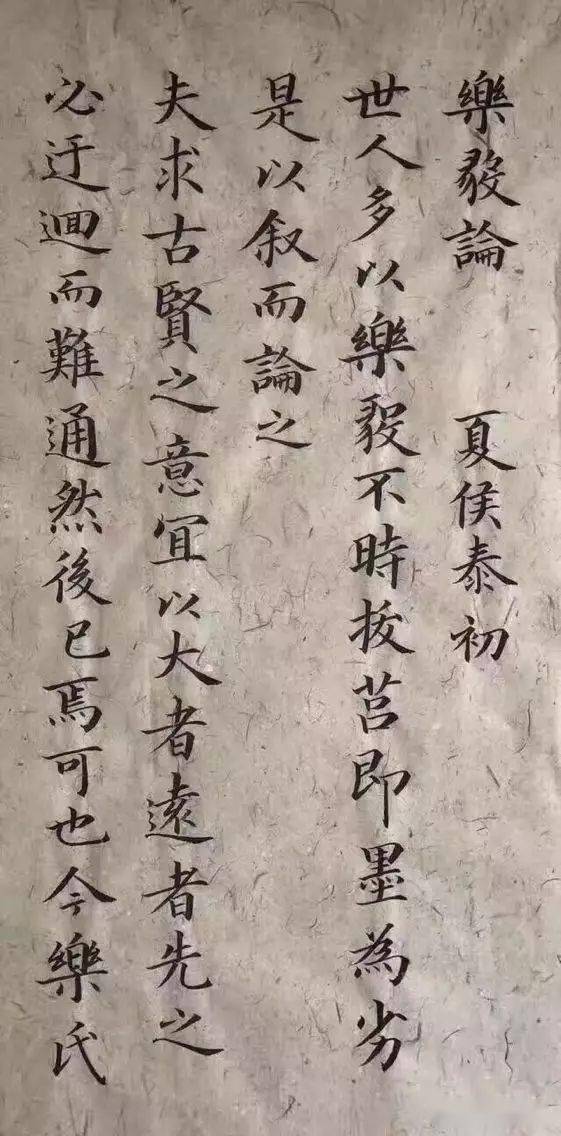 樂毅論 夏侯泰初
世人多以樂毅不時拔莒即墨為劣
是以叙而論之
夫求古賢之意宜以大者遠者先之
必迂迴而難通然後已焉可也今樂氏